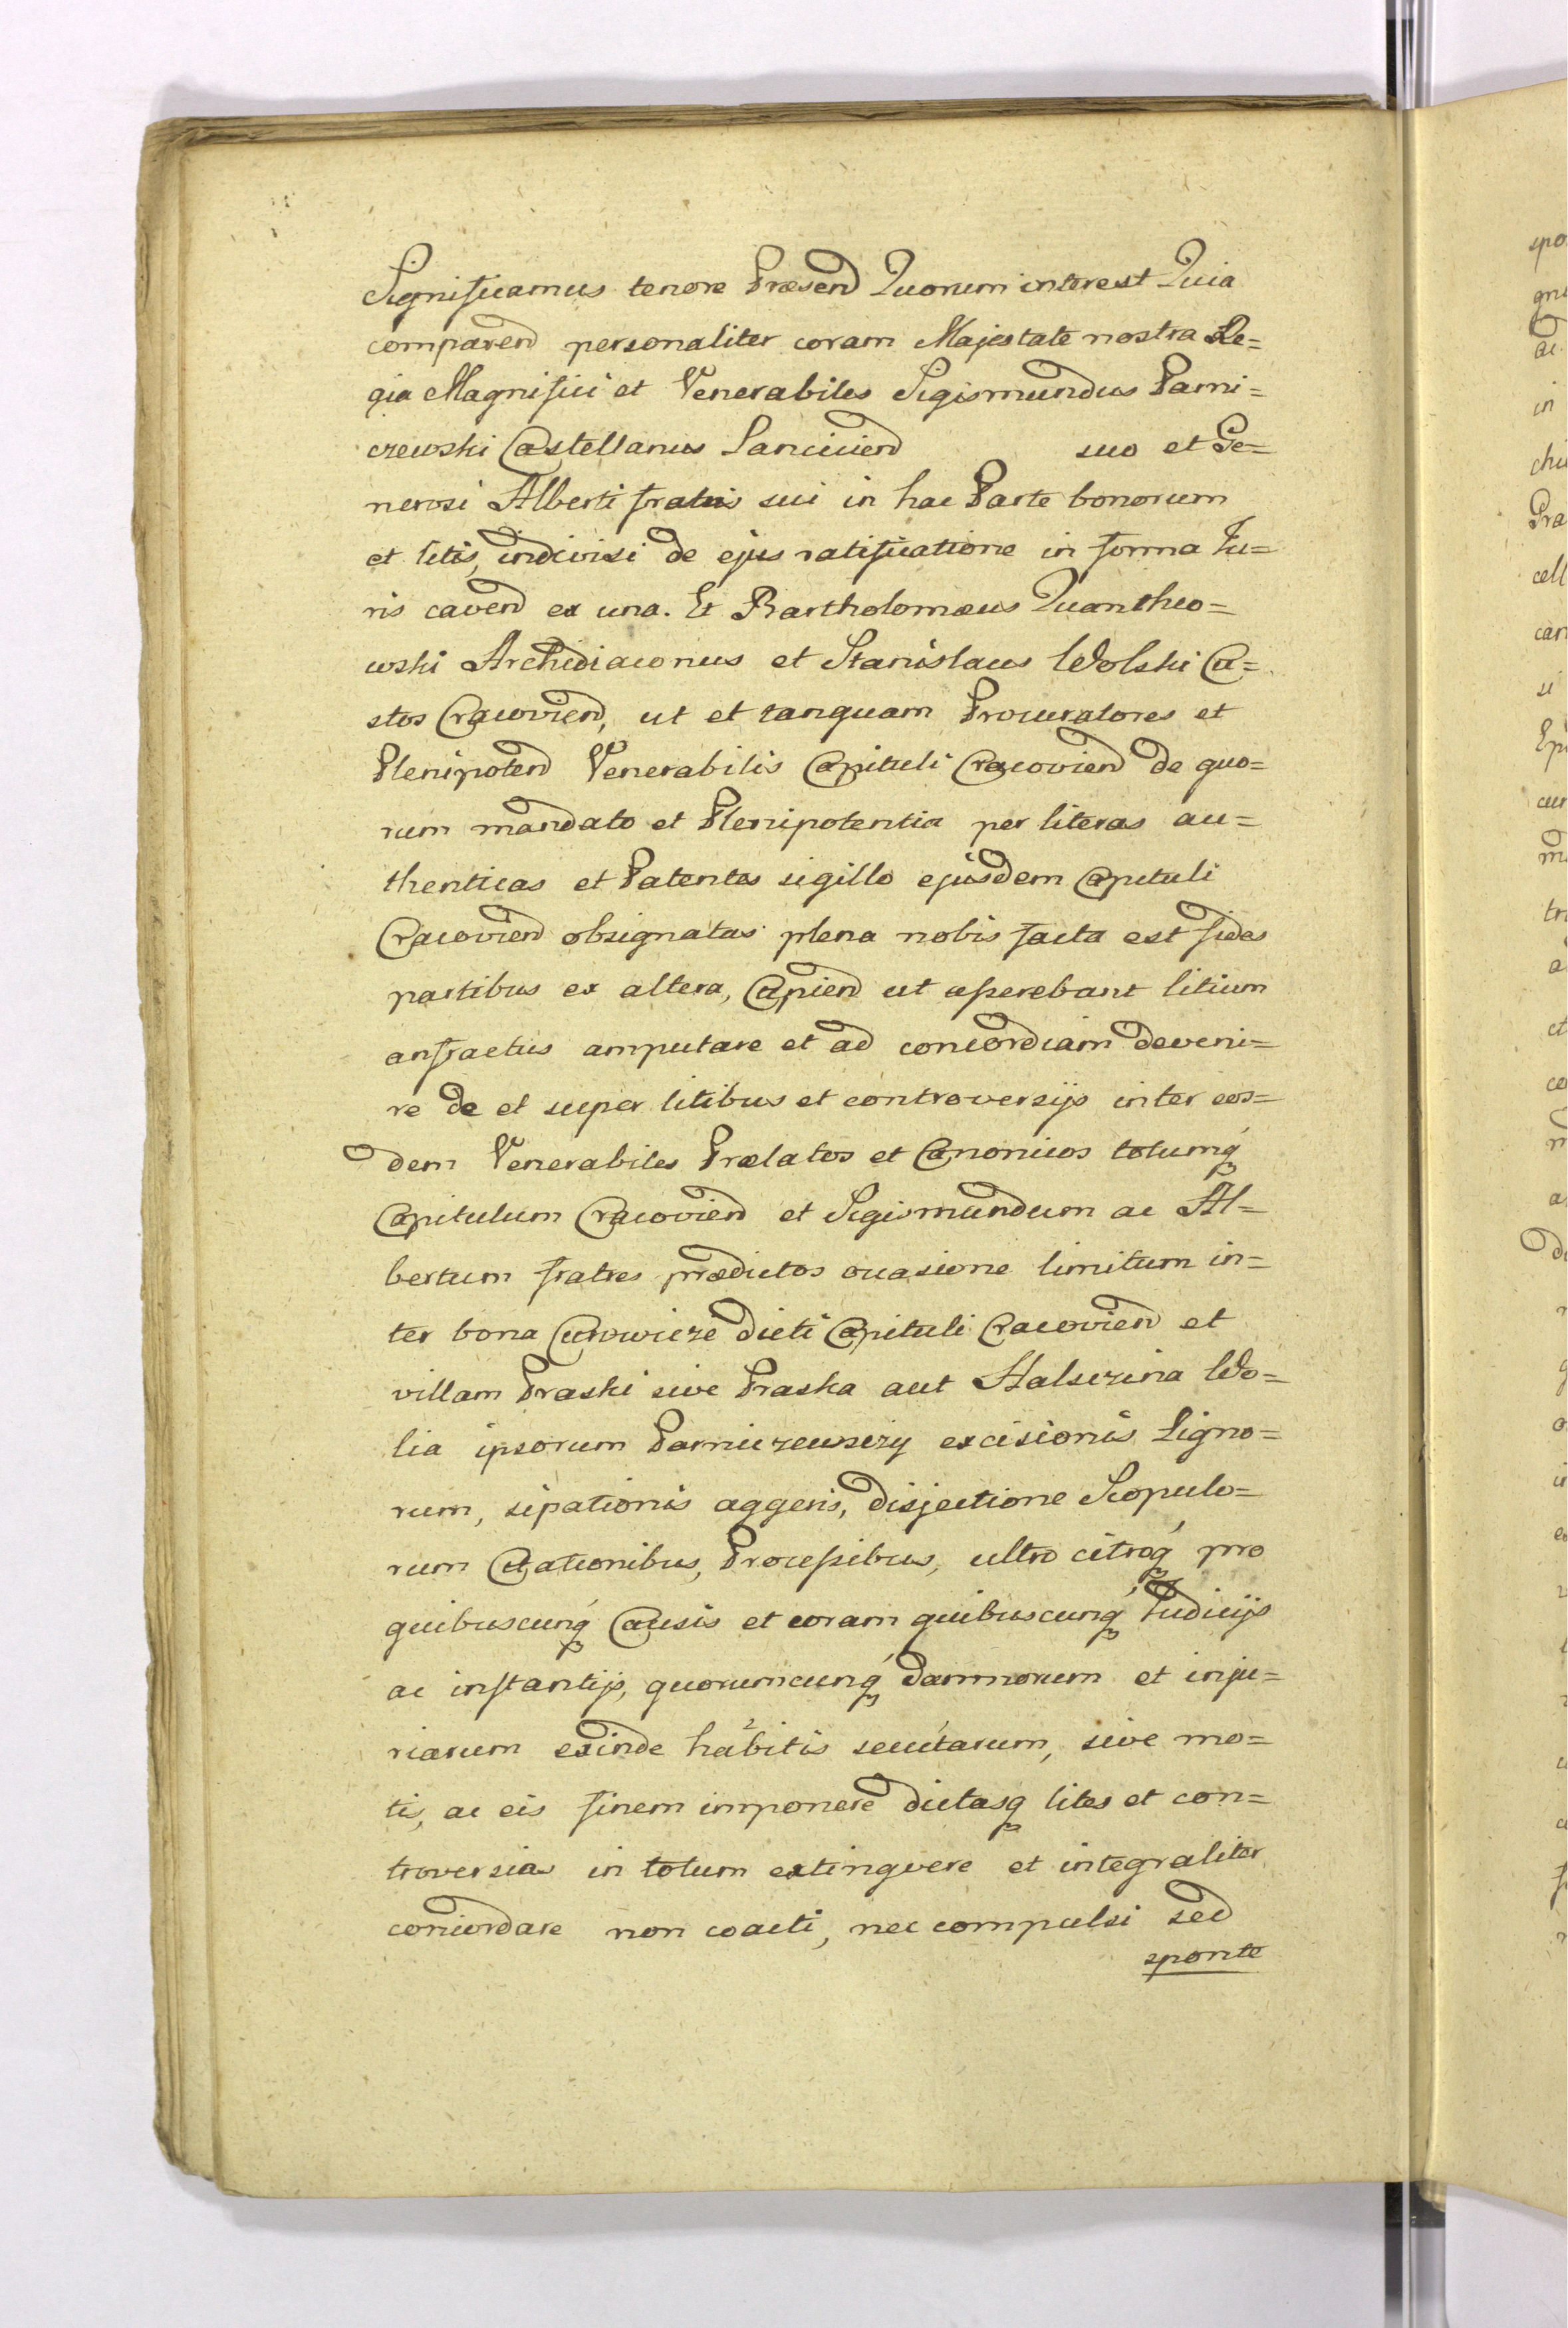 Significamus tenore Præsend Quorum interest Quia
comparend personaliter coram Majestate nostra Re=
gia Magnifici et Venerabiles Sigismundus Parni=
czewski Castellanus Lanciciend suo et Ge=
nerosi Alberti fratris sui in hac Parte bonorum
et litis, indivisi de ejus ratificatione in forma Iu=
ris cavend ex una. Et Bartholomæus Quantheo=
wski Archidiaconus et Stanislaus Wolski Cu=
stos Cracoviend, ut et tanquam Procuratores et
Plenipotend Venerabilis Capituli Cracoviend de quo=
rum mandato et Plenipotentia per literas au=
thenticas et Patentes sigillo ejusdem Capituli
Cracoviend obsignatas plena nobis facta est fides
partibus ex altera, Capiend ut asserebant litium
anfractus amputare et ad concordiam deveni=
re de et super litibus et controversijs inter eos=
dem Venerabiles Prælatos et Canonicos totumq́
Capitulum Cracoviend et Sigismundum ac Al=
bertum fratres prædictos occasione limitum in=
ter bona Curowicze dicti Capituli Cracoviend et
villam Praski sive Praska aut Halsczina Wo=
lia ipsorum Parniczewsczy excisionis Ligno=
rum, sipationis aggeris, disjectione Scopulo=
rum Citationibus, Processibus, ultro citroq́ pro
quibuscunq́ Causis et coram quibuscunq́ Iudicijs
ac instantijs, quorumcunq́ damnorum et inju=
riarum exinde habitis secutarum, sive mo=
tis, ac eis finem imponere dictasq lites et con=
troversias in totum extinguere et integraliter
concordare non coacti, nec compulsi sed
sponte